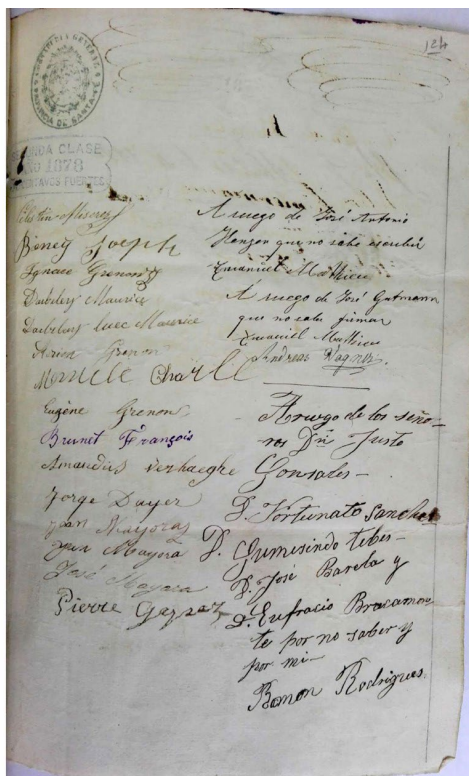 124
CONTADURIA GENERAL
PROVINCIA DE SANTA FÉ
SEGUNDA CLASE
AÑO 1878
CENTAVOS FUERTES
Celestin
Beney Joseph
Ignace Grenon
Daubeluy Maurice
Daubeluy Luec Maurice
Grenon
Charle
Eugène Grenon
Brunet François
Amandus Verhaeghe
Jorge Dayer
Juan Mayoraz
Juan Mayora
José Mayora
Pierre Gaspoz
A ruego de José Antonio
Henzen que no sabe escribir
Emanuel Mathieu
A ruego de José Gutmann
que no sabe firmar
Emanuel Mathieu
Andreas Wagner
A ruego de los seño-
res Dn Justo
Gonsales-
D. Fortunato Sanchez
D. Gumesindo tebes-
D. José Barela y
D. Eufracio Bracamon
te por no saber y
por mi-
Ramon Rodrigues